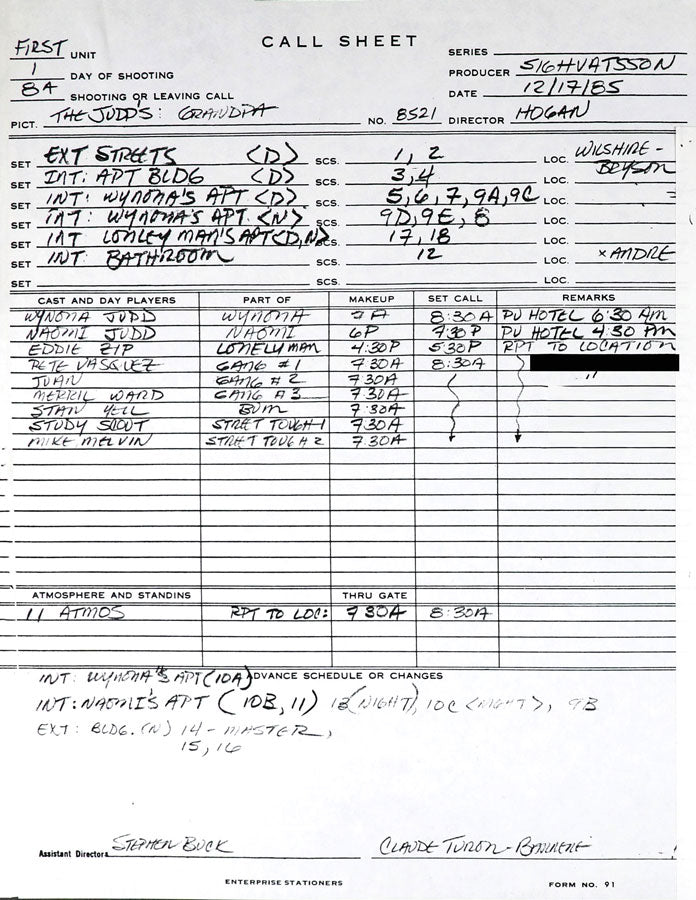 CALL SHEET
FIRST UNIT
SERIES
1 DAY OF SHOOTING
PRODUCER SIGHVATSSON
8A SHOOTING OR LEAVING CALL
DATE 12/17/85
PICT. THE JUDD'S: GRANDPA NO. 8521 DIRECTOR HOGAN
SET EXT STREETS <D> SCS. 1, 2 LOC. WILSHIRE-
SET INT: APT BLDG <D> SCS. 3,4 LOC. BRYSON
SET INT: WYNONA'S APT <D> SCS. 5, 6, 7, 9A, 9C LOC.
SET INT: WYNONA'S APT. <N> SCS. 9D, 9E, 8 LOC.
SET INT LONLEY MAN'S APT <D,N> SCS. 17, 18 LOC.
SET INT: BATHROOM SCS. 12 LOC. x ANDRE
SET SCS. LOC.
CAST AND DAY PLAYERS PART OF MAKEUP SET CALL REMARKS
WYNONA JUDD WYNONA 7A 8:30A PU HOTEL 6:30 AM
NAOMI JUDD NAOMI 6P 7:30P PU HOTEL 4:30 PM
EDDIE ZIP LONELY MAN 4:30P 5:30P RPT TO LOCATION
PETE VASQUEZ GANG #1 7:30A 8:30A
JUAN GANG #2 7:30A "
MERRIL WARD GANG #3 7:30A
STAN YELL BUM 7:30A
STUDY SCOUT STREET TOUGH 1 7:30A
MIKE MELVIN STREET TOUGH 2 7:30A
ATMOSPHERE AND STANDINS THRU GATE
11 ATMOS RPT TO LOC: 7 30A 8:30A
INT: WYNONA'S APT (10A) ADVANCE SCHEDULE OR CHANGES
INT: NAOMI'S APT (10B, 11) 13 (NIGHT), 10C <NIGHT>, 9B
EXT: BLDG. (N) 14 - MASTER,
15, 16
Assistant Directors STEPHEN BUCK CLAUDE TURON-
ENTERPRISE STATIONERS FORM NO. 91